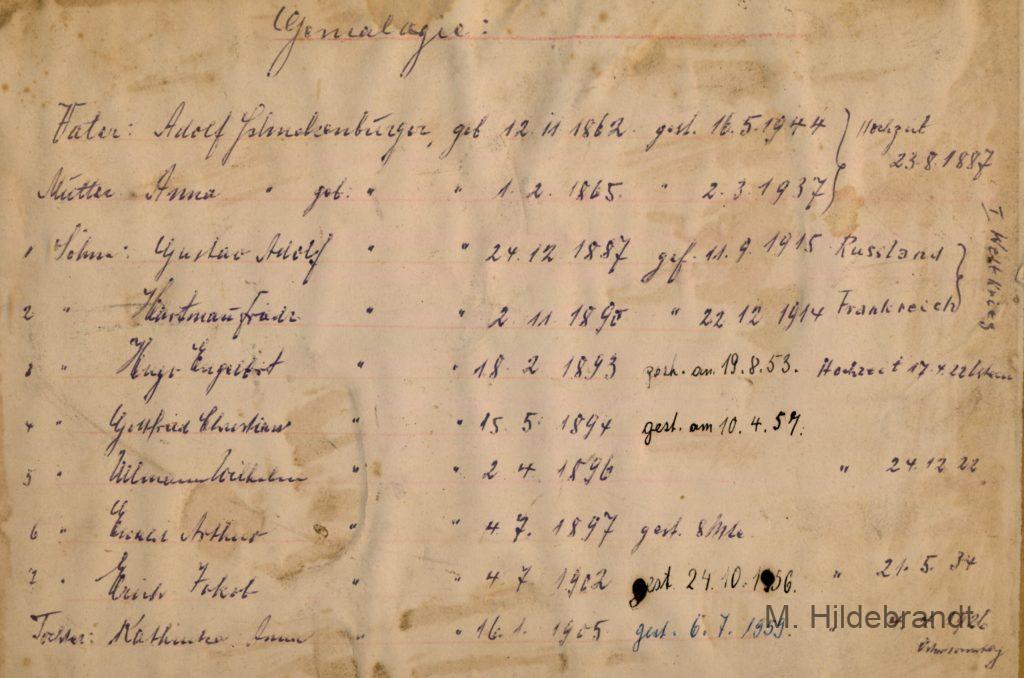 Genealogie:
Vater: Adolf Schneckenburger, geb 12. 11 1862. gest. 16.5.1944 } Hochzeit 23.8.1887
Mutter Anna " geb: " " 1. 2. 1865. " 2.3.1937 }
1 Söhne: Gustav Adolf " " 24.12 1887 gef. 11.9.1915 Russland } I. Weltkrieg
2 " " " 2. 11. 1890 " 22 12 1914 Frankreich
3 " Hugo Engelbert " " 18. 2 1893 gest. am 19.8.53. Hochzeit 17.4.22
4 " Gottfried Christian " " 15. 5. 1894 gest. am 10.4.57.
5 " Wilhelm " " 2. 4. 1896 " 24.12 22
6 " Ewald Arthur " " 4 7. 1897 gest. 8 Mte.
7 " Erich Jakob " " 4 7 1902 gest. 24.10.1956. " 21. 5. 34
Tochter: Anna " " 16.1. 1905 gest. 6.7.1959. "
M. Hildebrandt